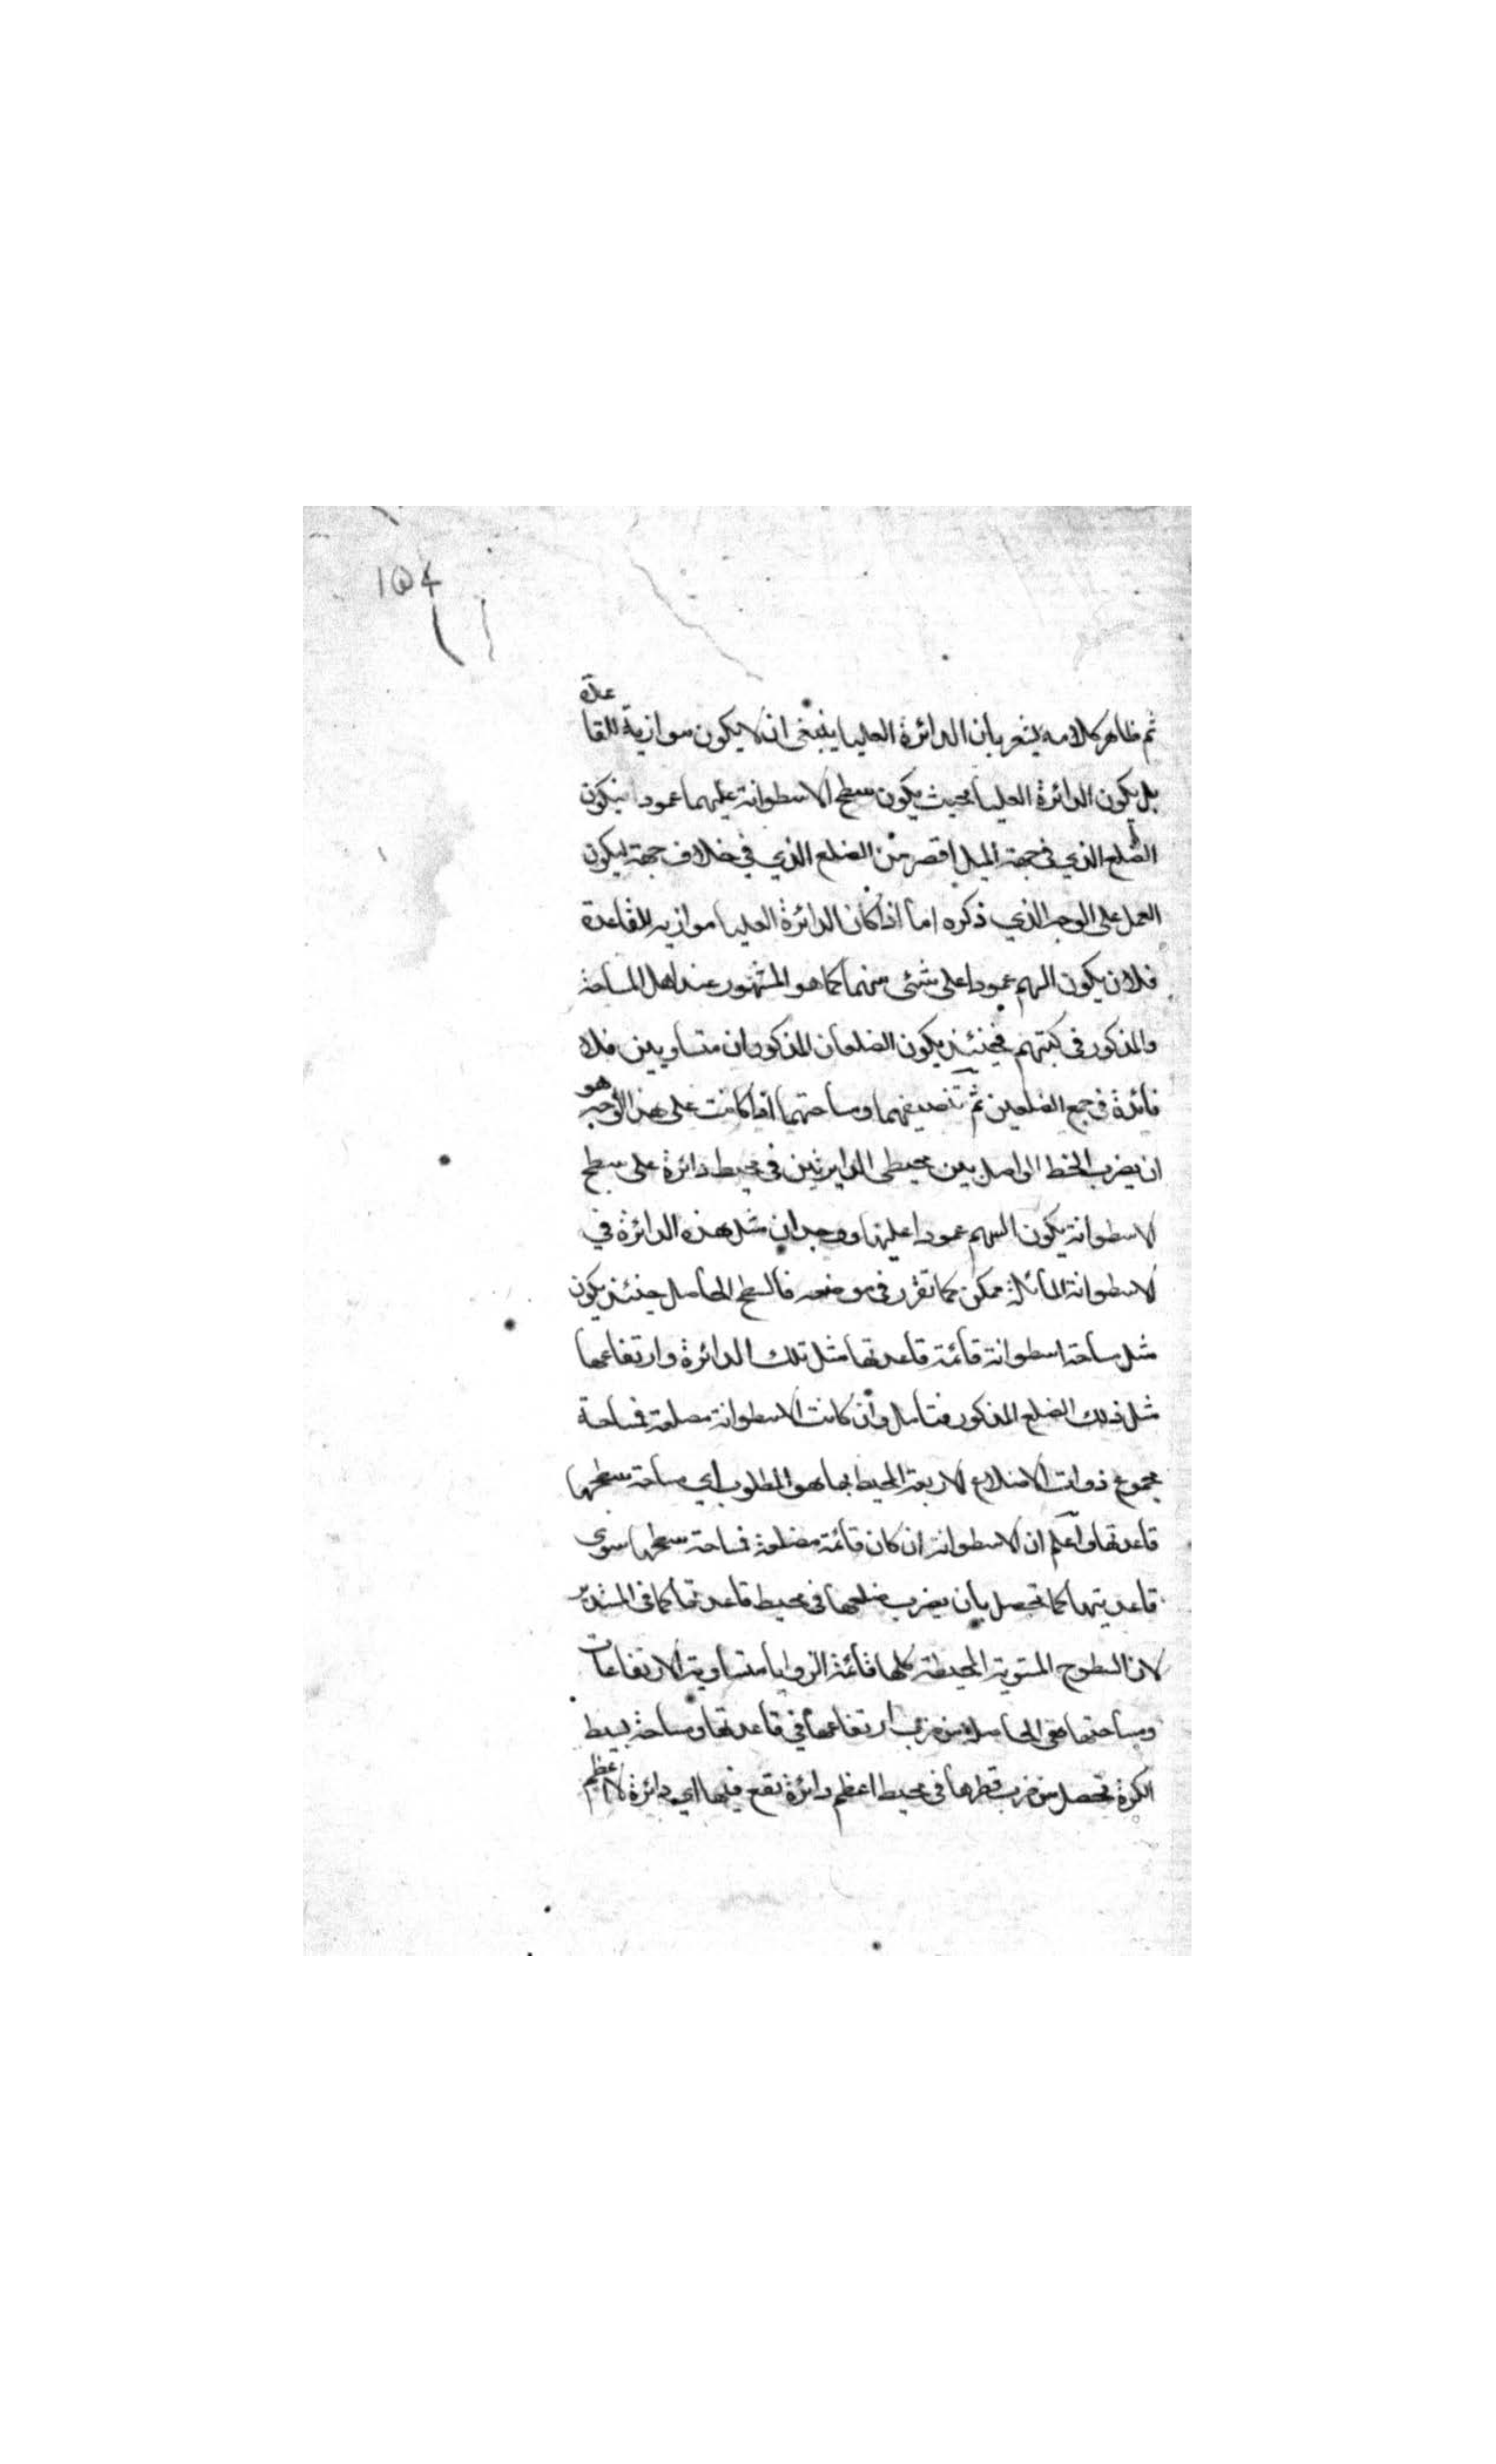 ١٥٤
ثم ظاهر كلامه يشعر بان الدائرة العليا ينبغى ان لا يكون موازية للقاعدة
بل يكون الدائرة العليا بحيث يكون سطح الاسطوانة عليهما عمودا فيكون
الضلع الذي في جهة الميل اقصر من الضلع الذي في خلاف جهته ليكون
العمل على الوجه الذي ذكره اما اذا كان الدائرة العليا موازيه للقاعدة
فلان يكون السهم عمودا على شئى منهما كما هو المشهور عند اهل المساحة
والمذكور فى كتبهم فحينئذ يكون الضلعان المذكوران متساويين فلا
فائدة فى جمع الضلعين ثم تنصيفهما ومساحتهما اذا كانت على هذا الوجه هو
ان يضرب الخط الواصل بين محيطى الدايرتين فى محيط دائرة على سطح
الاسطوانة يكون السهم عمودا عليها ووجدان مثل هذه الدائرة في
الاسطوانة المائلة ممكن كما تقرر فى موضعه فالسطح الحاصل حينئذ يكون
مثل مساحة اسطوانة قائمة قاعدتها مثل تلك الدائرة وارتفاعها
مثل ذلك الضلع المذكور فتامل وان كانت الاسطوانة مضلعة فمساحة
مجموع ذوات الاضلاع الاربعة المحيط بها هو المطلوب اي مساحة سطحها
قاعدتها واعلم ان الاسطوانة ان كان قائمة مضلعة فمساحة سطحها سوى
قاعديتها كما تحصل بان يضرب ضلعها فى محيط قاعدتها كما فى المستدير
لان السطوح المستوية المحيطة كلها قائمة الزوايا متساوية الارتفاعات
ومساحتها هى الحاصلة من ضرب ارتفاعها في قاعدتها ومساحة بسيط
الكرة تحصل من ضرب قطرها فى محيط اعظم دائرة تقع فيها اي دائرة الاعظم